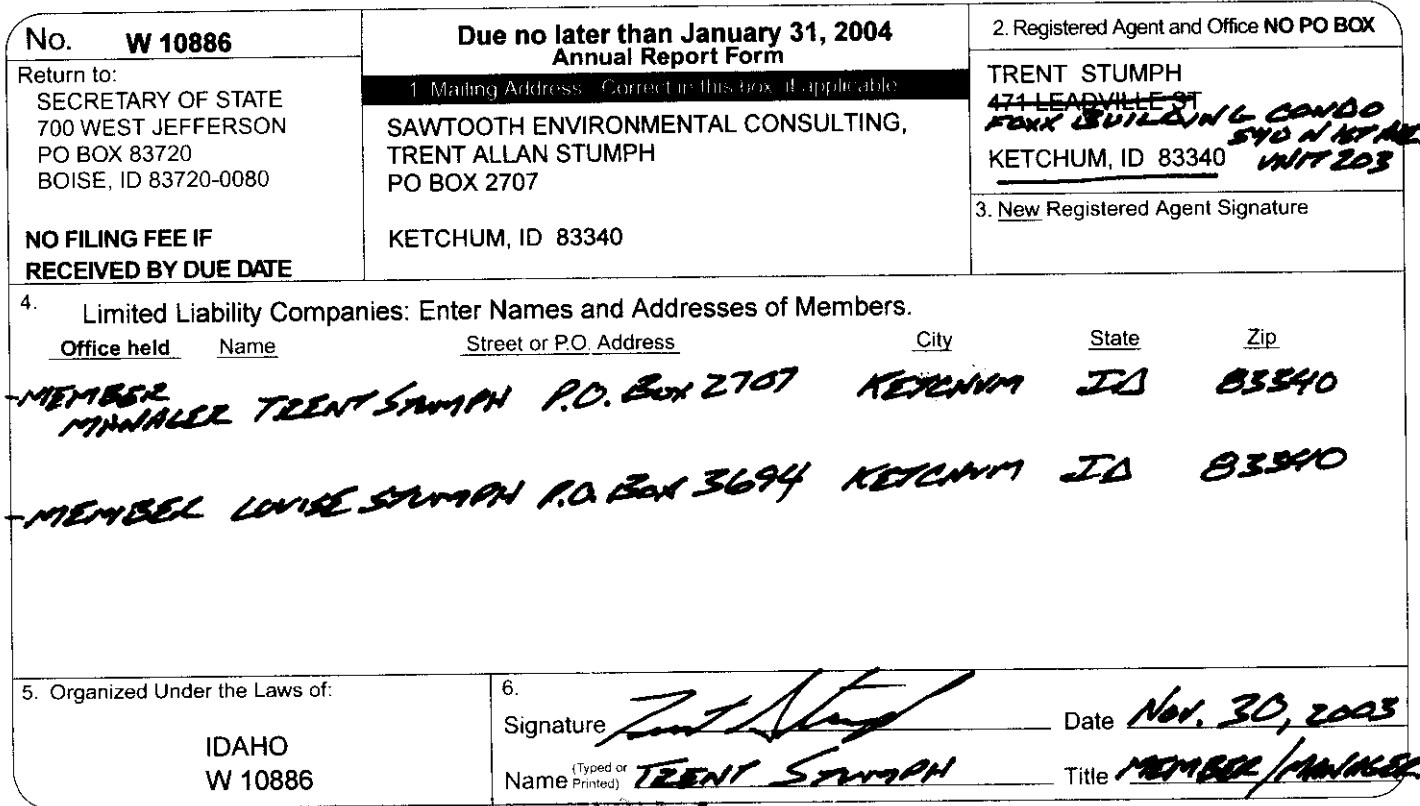 No. W 10886
Return to:
SECRETARY OF STATE
700 WEST JEFFERSON
PO BOX 83720
BOISE, ID 83720-0080
NO FILING FEE IF
RECEIVED BY DUE DATE
Due no later than January 31, 2004
Annual Report Form
1. Mailing Address: Correct in this box, if applicable
SAWTOOTH ENVIRONMENTAL CONSULTING,
TRENT ALLAN STUMPH
PO BOX 2707
KETCHUM, ID 83340
2. Registered Agent and Office NO PO BOX
TRENT STUMPH
471 LEADVILLE ST
FOXX BUILDING CONDO
540 N 1ST AVE
KETCHUM, ID 83340 UNIT 203
3. New Registered Agent Signature
4. Limited Liability Companies: Enter Names and Addresses of Members.
Office held Name Street or P.O. Address City State Zip
-MEMBER
MANAGER TRENT STUMPH P.O. Box 2707 KETCHUM ID 83340
-MEMBER LOUISE STUMPH P.O. Box 3694 KETCHUM ID 83340
5. Organized Under the Laws of:
IDAHO
W 10886
6.
Signature Trent Stumph Date Nov. 30, 2003
Name (Typed or Printed) TRENT STUMPH Title MEMBER/MANAGER